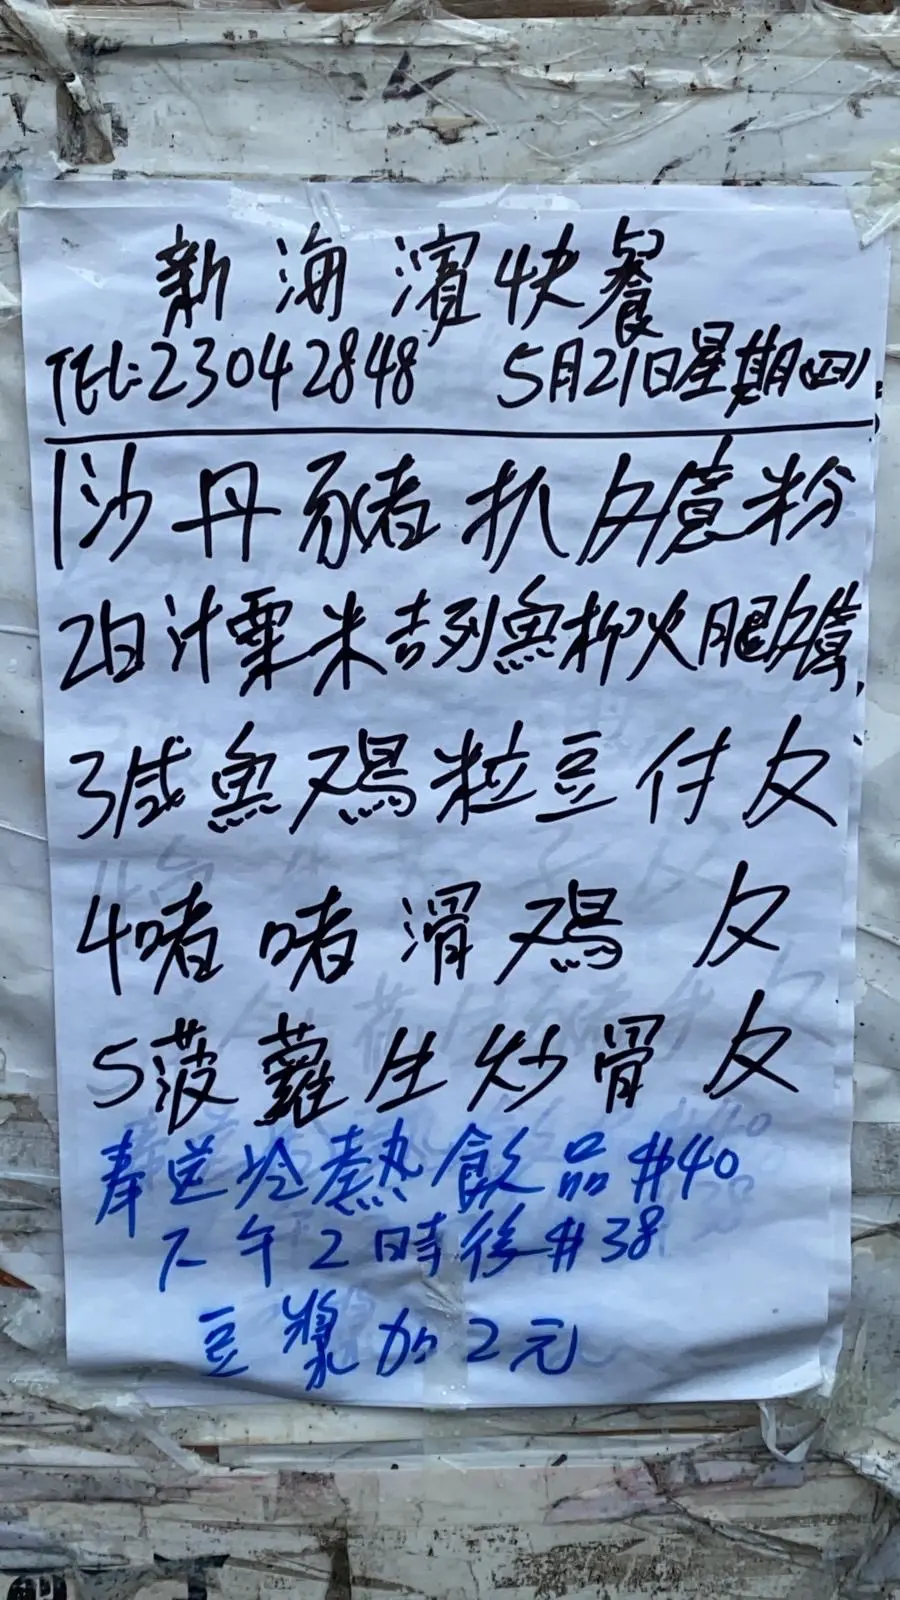 新海濱快餐
TEL:23042848 5月21日星期(四)
1沙丹豬扒反意粉
2白汁粟米吉列魚柳火腿反意
3咸魚鸡粒豆付反
4啫啫滑鸡反
5菠蘿生炒骨反
奉送冷熱飲品#40
下午2時後#38
豆漿加2元